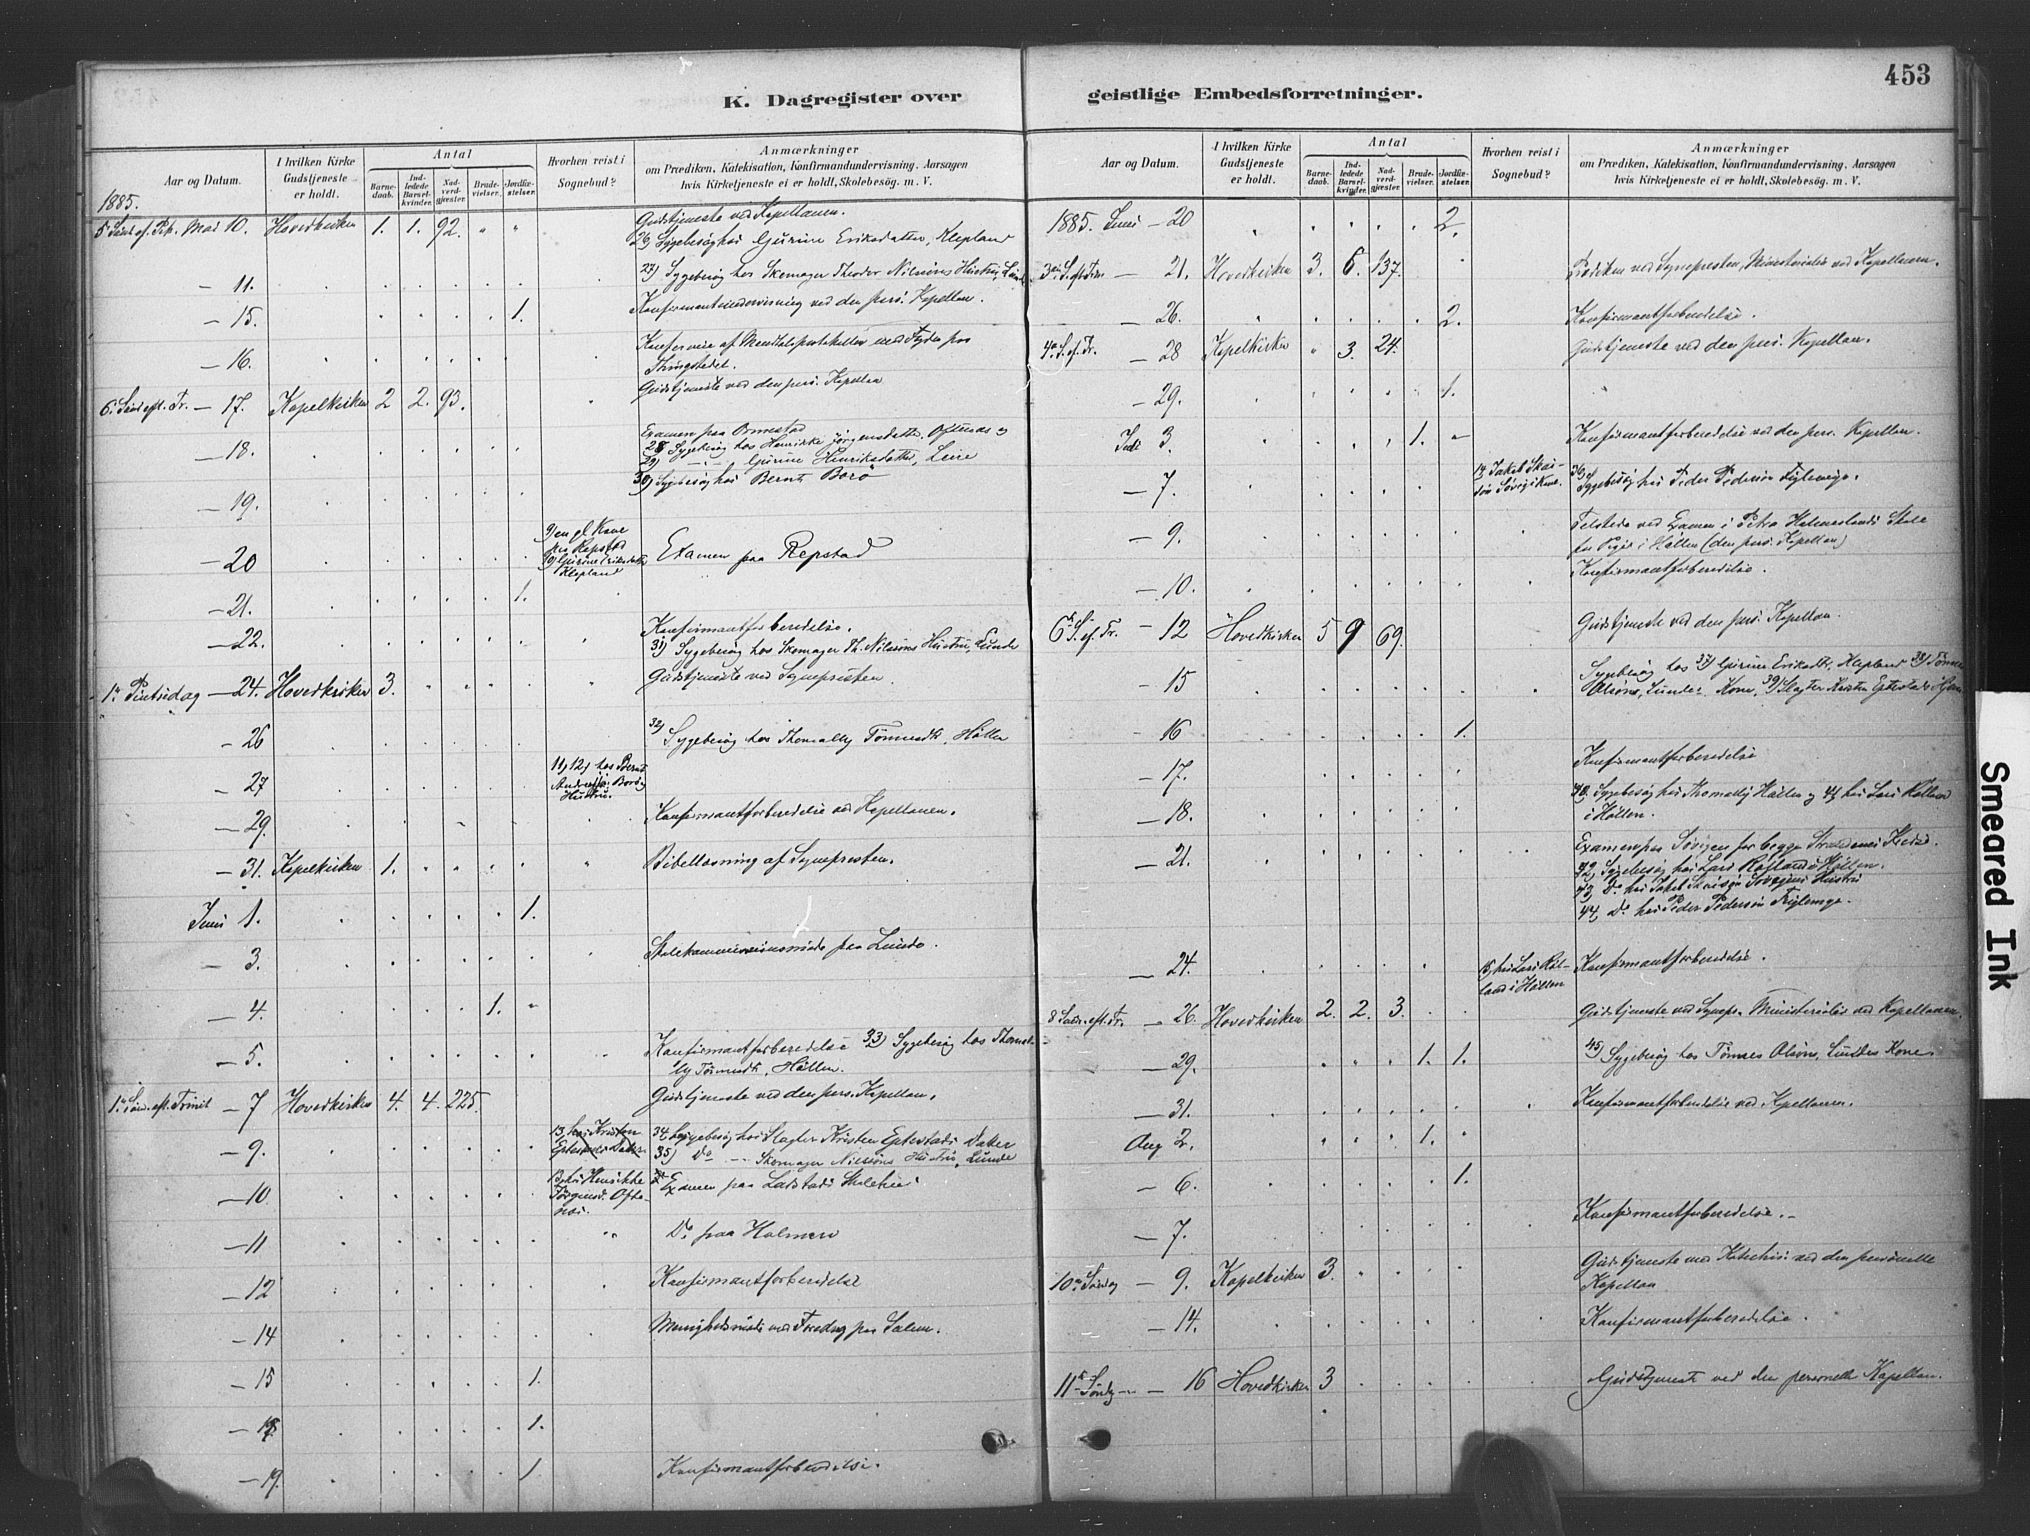 453
K. Dagregister over geistlige Embedsforretninger.
Aar og Datum. I hvilken Kirke Gudstjeneste er holdt. Antal Barnedaab. Indledede Barselkvinder. Nadverdgjæster. Brudevielser. Jordfæstelser. Hvorhen reist i Sognebud? Anmærkninger om Prædiken, Katekisation, Konfirmandundervisning, Aarsagen hvis Kirketjeneste ei er holdt, Skolebesøg. m. V.
1885.
Mai 10. Hovedkirken 1. 1. 92. " " Gudstjeneste ved Kapellanen.
26) Sygebesøg hos Gurine Eriksdatter, Klepland
— 11. 27) Sygebesøg hos Skomager Theodor Nilsøns Hustru, Lunde
— 15. 1. Konfirmantundervisning ved den pers. Kapellan.
— 16.
Thingstedet.
— 17. Kapelkirken 2 2. 93. Gudstjeneste ved den pers. Kapellan
— 18. Examen paa Ormestad
28) Sygebesøg hos Henrikke Jørgensdatter, Oftenæs og
29) Gurine Henriksdatter, Leire
— 19. 30) Sygebesøg hos Bernt Borø
— 20 9) en gl. Kone
paa Repstad
10) Gurine Eriksdatter
Klepland
Examen paa Repstad
— 21. 1.
— 22. Konfirmantforberedelse.
31) Sygebesøg hos Skomager Th. Nilsøns Hustru, Lunde
1ste Pintsedag — 24. Hovedkirken 3. Gudstjeneste ved Sognepresten.
— 26 32) Sygebesøg hos Thomally Tønnesdt., Høllen
— 27 11) 12) hos Bernt
Borø og
Hustru.
— 29. Konfirmantforberedelse ved Kapellanen.
— 31. Kapelkirken 1. Bibellæsning af Sognepresten.
Juni 1. 1.
— 3. Skolekommissionsmøde paa Lunde.
— 4. 1.
— 5. Konfirmantforberedelse 33) Sygebesøg hos Thomal-
ly Tønnesdt., Høllen.
1. Sønd. eft. Trinit — 7 Hovedkirken 4. 4. 225. Gudstjeneste ved den pers. Kapellan.
— 9. 34) Sygebesøg hos Slagter Kristen Eptestads Datter
35) Do — Skomager Nilsøns Hustru, Lunde
— 10 hos Henrikke
Jørgensd. Ofte-
næs.
Examen paa Langstads Skolehus
— 11 Do paa Holmen
— 12 Konfirmantforberedelse
— 14 Menighedsmøde med Foredrag paa Salem.
— 15 1.
— 18 1.
— 19. 1. Konfirmantforberedelse.
Aar og Datum. I hvilken Kirke Gudstjeneste er holdt. Antal Barnedaab. Indledede Barselkvinder. Nadverdgjæster. Brudevielser. Jordfæstelser. Hvorhen reist i Sognebud? Anmærkninger om Prædiken, Katekisation, Konfirmandundervisning, Aarsagen hvis Kirketjeneste ei er holdt, Skolebesøg. m. V.
1885. Juni — 20 2.
3die S. eft. Trin. — 21. Hovedkirken 3. 6. 137. Prædiken ved Sognepresten, Ministerialia ved Kapellanen.
— 26. 2. Konfirmantforberedelse.
4de S. ef. Tr. — 28 Kapelkirken " 3. 24. Gudstjeneste ved den pers. Kapellan.
— 29. 1.
Juli 3. 1. Konfirmantforberedelse ved den pers. Kapellan.
— 7. 14) Jakob Skai-
søn Søvigs Kone.
36) Sygebesøg hos Peder Pedersøn
— 9. Tilstede ved Examen i Petra Holmeslands Skole
for Piger i Høllen (den pers. Kapellan)
— 10. Konfirmantforberedelse.
6te S. ef. Tr. — 12 Hovedkirken 5 9 69. Gudstjeneste ved den pers. Kapellan.
— 15 Sygebesøg hos 37) Gurine Eriksdt., Klepland 38) Tønnes
Olsøns, Lundes Kone, 39) Slagter Kristen Eptestads
— 16 1.
— 17. Konfirmantforberedelse
— 18. 40) Sygebesøg hos Thomally Høllen og 41) hos Lars
i Høllen.
— 21. Examen paa Søvigen for begge Strandenes Kredse.
42) Sygebesøg hos Lars i Høllen.
43) Do hos Jakob Skaisøn Søvigens Hustru
44) Do hos Peder Pedersøn
— 24. 15) hos Lars
i Høllen
Konfirmantforberedelse.
8 Sønd. eft. Tr. — 26. Hovedkirken 2. 2. 3. Gudstjeneste ved Sognepr. Ministerialia ved Kapellanen.
— 29. 1. 1. 45) Sygebesøg hos Tønnes Olsøns, Lundes Kone.
— 31. Konfirmantforberedelse ved Kapellanen.
Aug 2. 1.
— 6. 1.
— 7. Konfirmantforberedelse.
10de Søndag — 9. Kapelkirken 3. Gudstjeneste med Katechis. ved den personelle
Kapellan
— 14. Konfirmantforberedelse.
11te Søndg — 16 Hovedkirken 3 Gudstjeneste ved den personelle Kapellan.
Smeared Ink